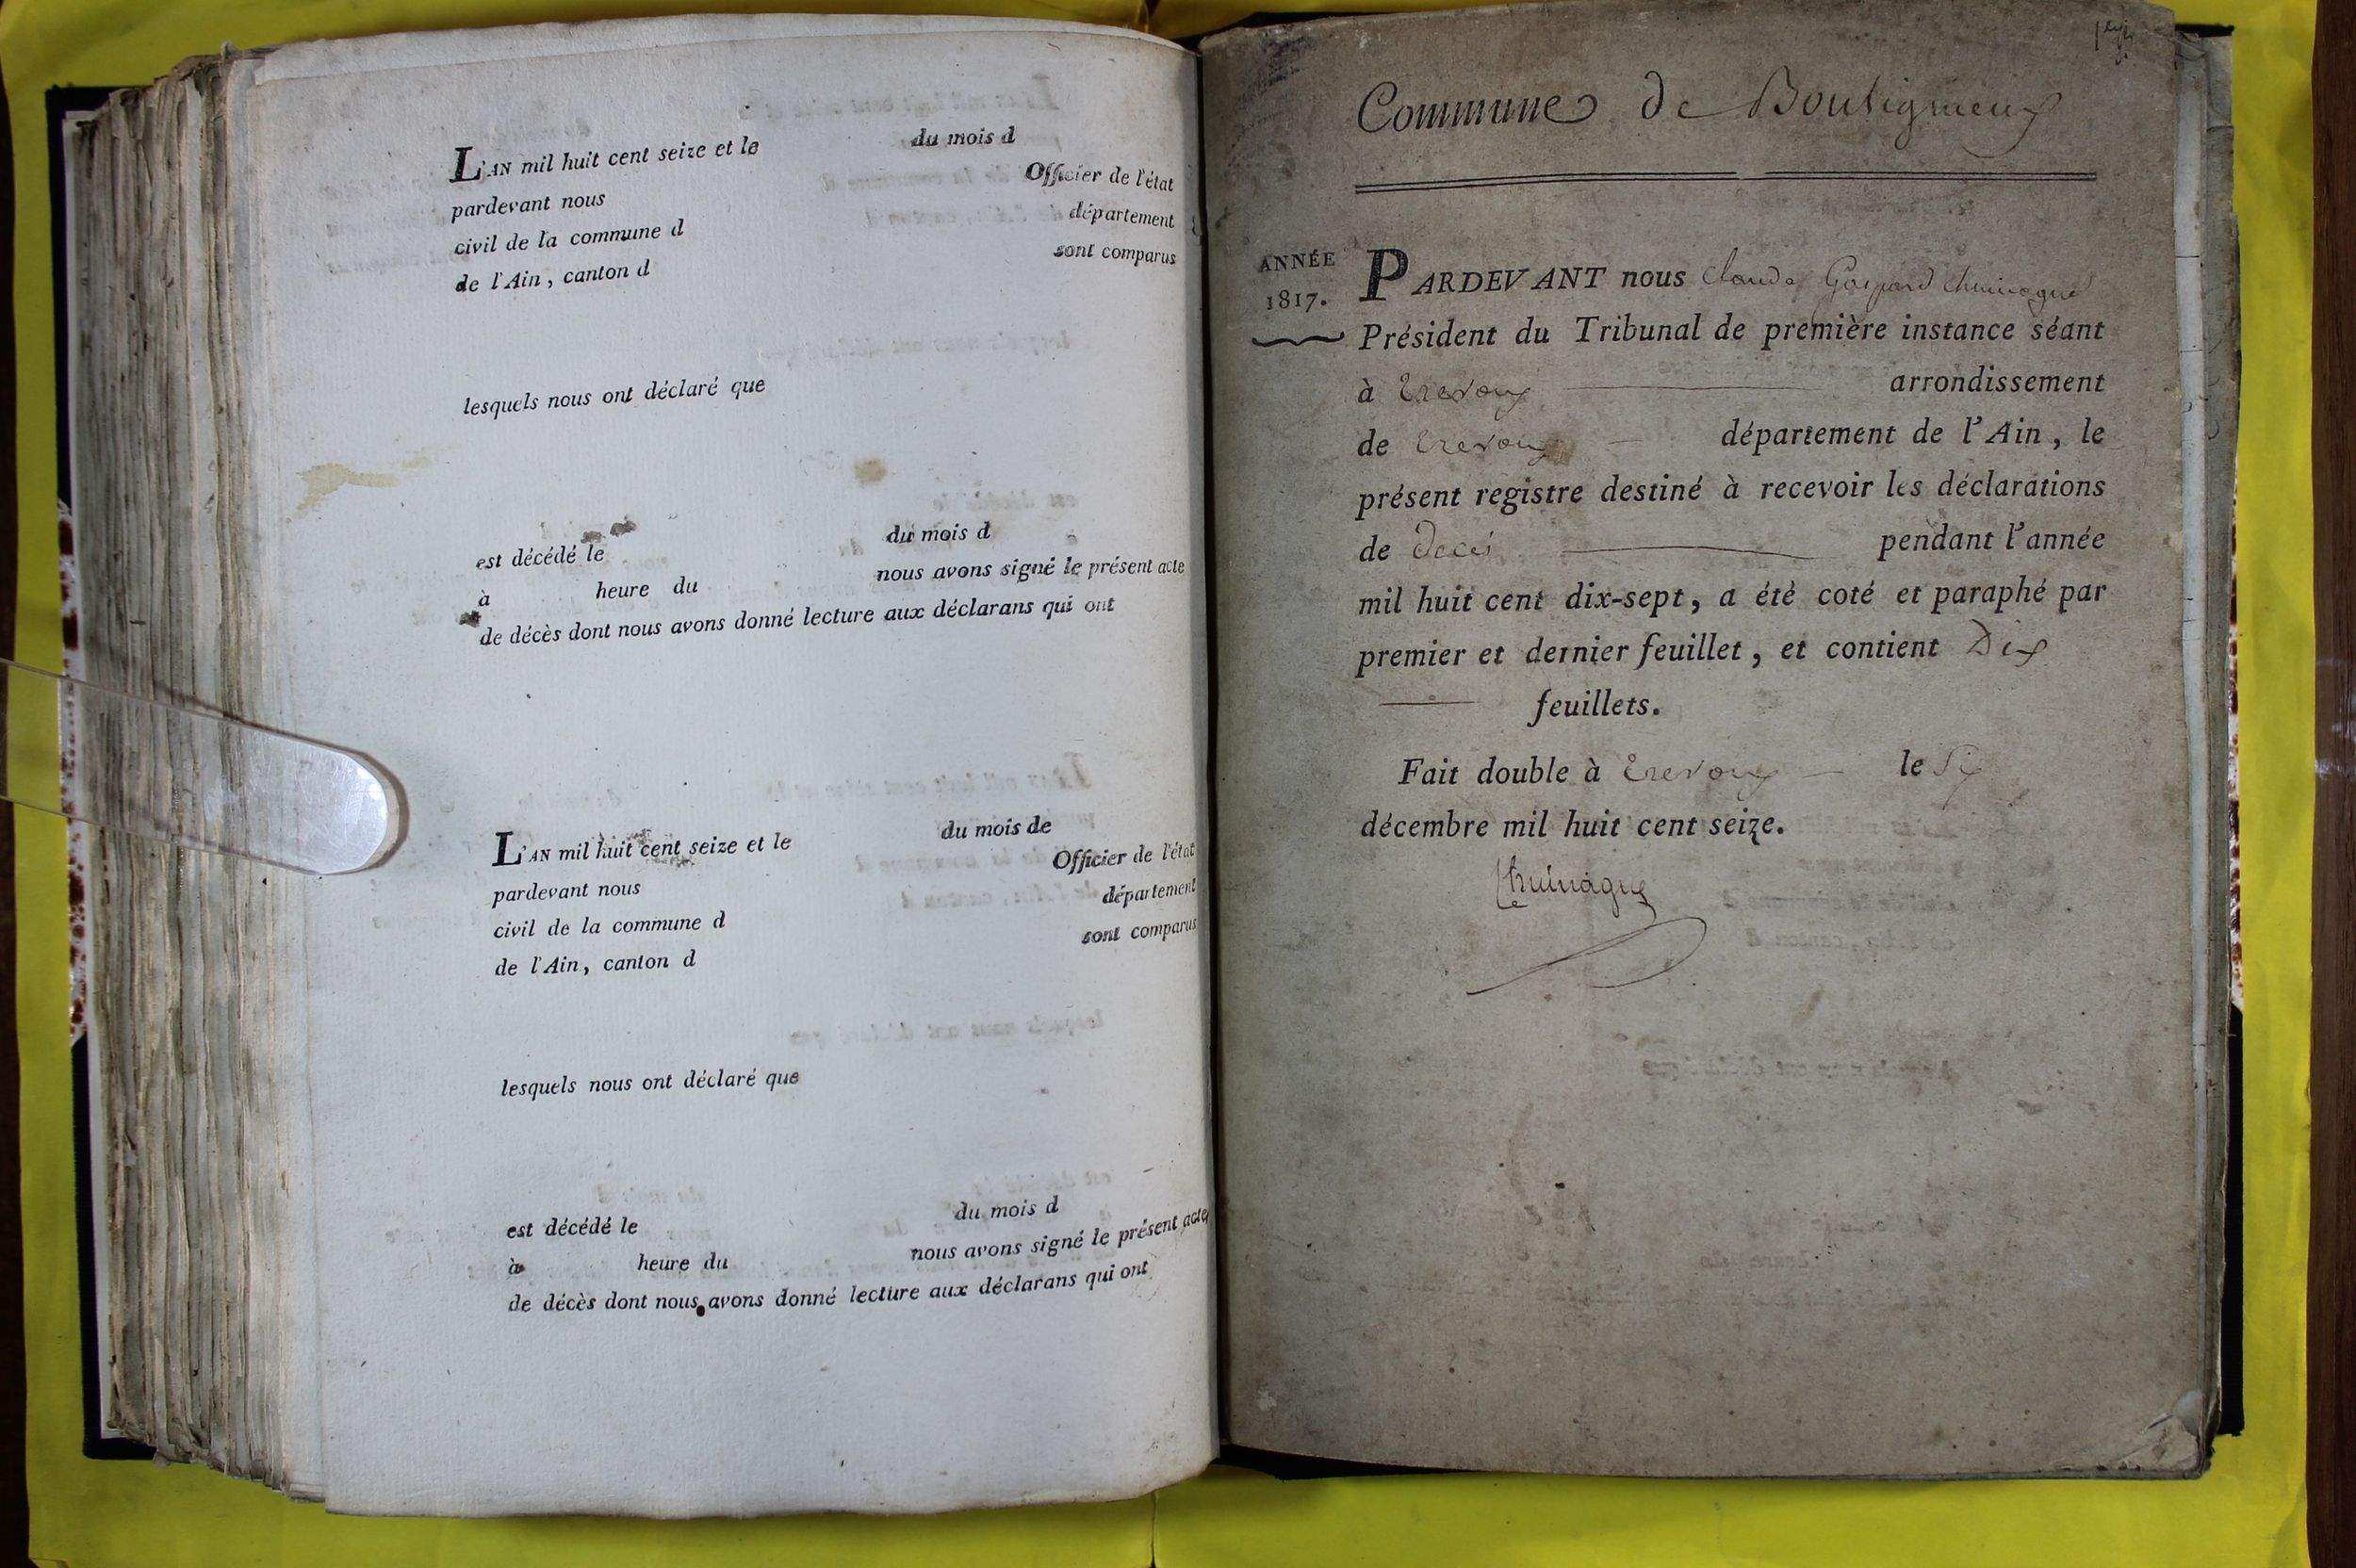 L'AN mil huit cent seize et le du mois d
pardevant nous Officier de l'état
civil de la commune d département
de l'Ain, canton d sont comparus
lesquels nous ont déclaré que
est décédé le du mois d
à heure du nous avons signé le présent acte
de décès dont nous avons donné lecture aux déclarans qui ont
L'AN mil huit cent seize et le du mois de
pardevant nous Officier de l'état
civil de la commune d département
de l'Ain, canton d sont comparus
lesquels nous ont déclaré que
est décédé le du mois d
à heure du nous avons signé le présent acte
de décès dont nous avons donné lecture aux déclarans qui ont
Commune de Bouligneux
ANNÉE
1817.
PARDEVANT nous Claude Gaspard
Président du Tribunal de première instance séant
à Trevoux arrondissement
de Trevoux département de l'Ain, le
présent registre destiné à recevoir les déclarations
de Décès pendant l'année
mil huit cent dix-sept, a été coté et paraphé par
premier et dernier feuillet, et contient Dix
feuillets.
Fait double à Trevoux le
décembre mil huit cent seize.